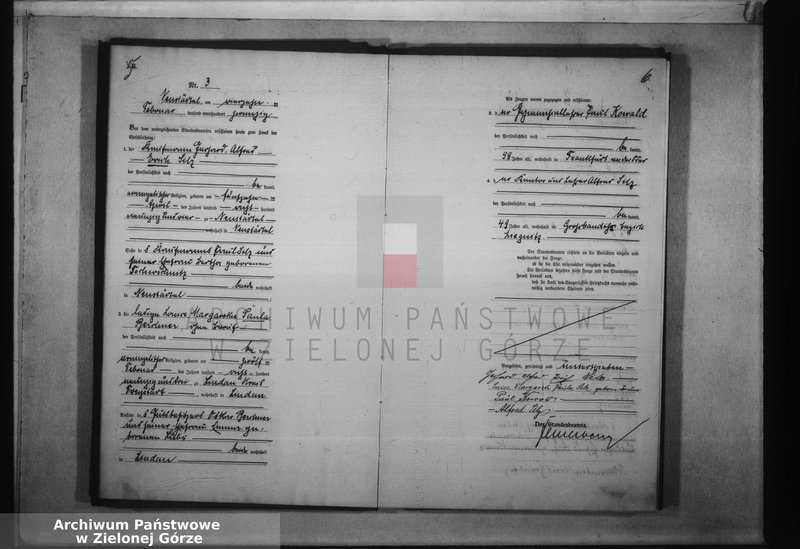 Nr. 3
Neusärtel am vierzehn
Februar tausend neunhundert zwanzig
Vor dem unterzeichneten Standesbeamten erschienen heute zum Zweck der
Eheschließung:
1. der Kaufmann Gerhard, Alfred
Erich Selz
der Persönlichkeit nach
be kannt,
evangelischer Religion, geboren am fünfzehn
April des Jahres tausend acht hundert
neunzig und vier zu Neusärtel
wohnhaft in Neusärtel
Sohn des Kaufmanns Emil Selz und
seiner Ehefrau Bertha geborenen
beide wohnhaft
in Neusärtel
2. die ledige Louise Margarethe Paula
Berdmer, ohne Beruf
der Persönlichkeit nach
be kannt,
evangelischer Religion, geboren am zwölf
Februar des Jahres tausend acht hundert
neunzig und drei zu Lindau Kreis
Freystadt, wohnhaft in Lindau
Tochter des Gutsbesitzers Oskar Berdmer
und seiner Ehefrau Emma ge-
borenen
beide wohnhaft
in Lindau
6.
Als Zeugen waren zugezogen und erschienen:
3. der Gymnasiallehrer Paul Kowald
der Persönlichkeit nach
be kannt,
38 Jahre alt, wohnhaft in Frankfurt an der Oder
4. der Kantor und Lehrer Alfred Selz
der Persönlichkeit nach
be kannt,
49 Jahre alt, wohnhaft in Bezirk
Liegnitz
Der Standesbeamte richtete an die Verlobten einzeln und
nacheinander die Frage:
ob sie die Ehe miteinander eingehen wollen.
Die Verlobten bejahten diese Frage und der Standesbeamte
sprach hierauf aus,
daß sie kraft des Bürgerlichen Gesetzbuchs nunmehr recht-
mäßig verbundene Eheleute seien.
Vorgelesen, genehmigt und unterschrieben
Gerhard Alfred Erich Selz
Paul Kowald
Alfred Selz
Der Standesbeamte.
ARCHIWUM PAŃSTWOWE
W ZIELONEJ GÓRZE
Archiwum Państwowe
w Zielonej Górze